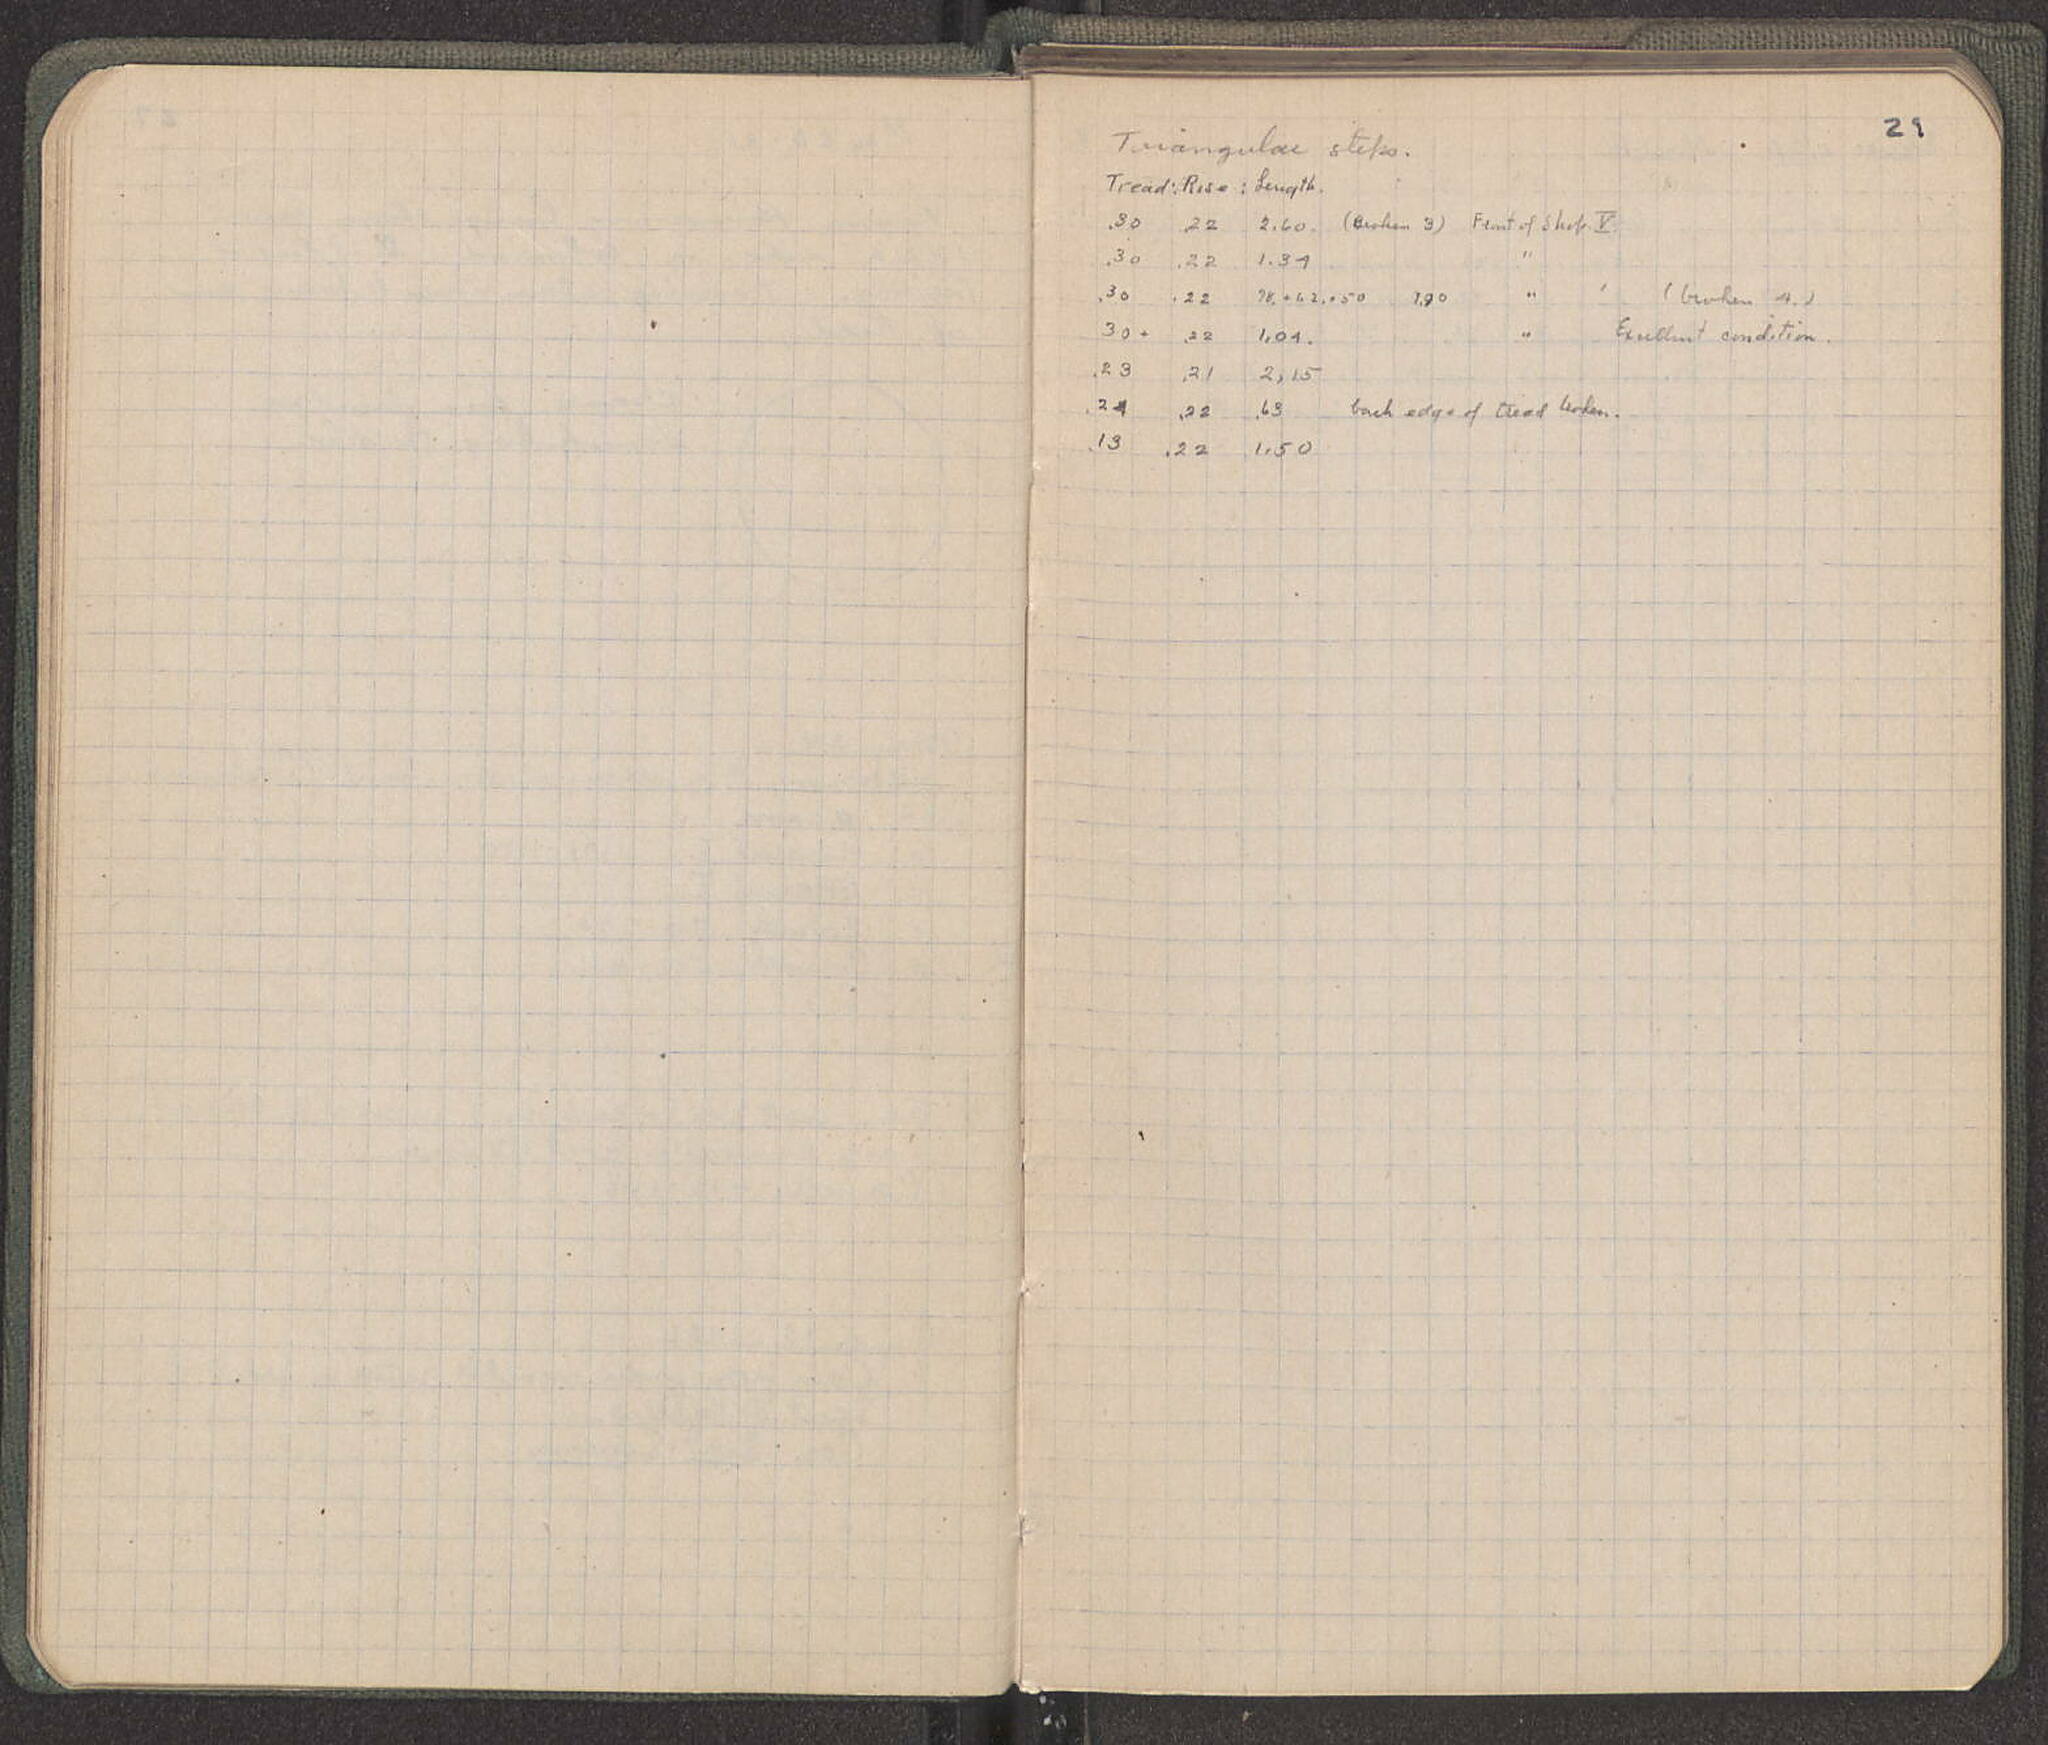 29
Triangular steps.
Tread : Rise : Length.
.30 .22 2.60. (Broken 3) Front of Shop V
.30 .22 1.34 "
.30 .22 78.+62.+50 1.90 " (broken 4.)
30+ .22 1.04. " Exellent condition.
.23 .21 2,15
.24 .22 .63 back edge of tread broken.
.13 .22 1.50